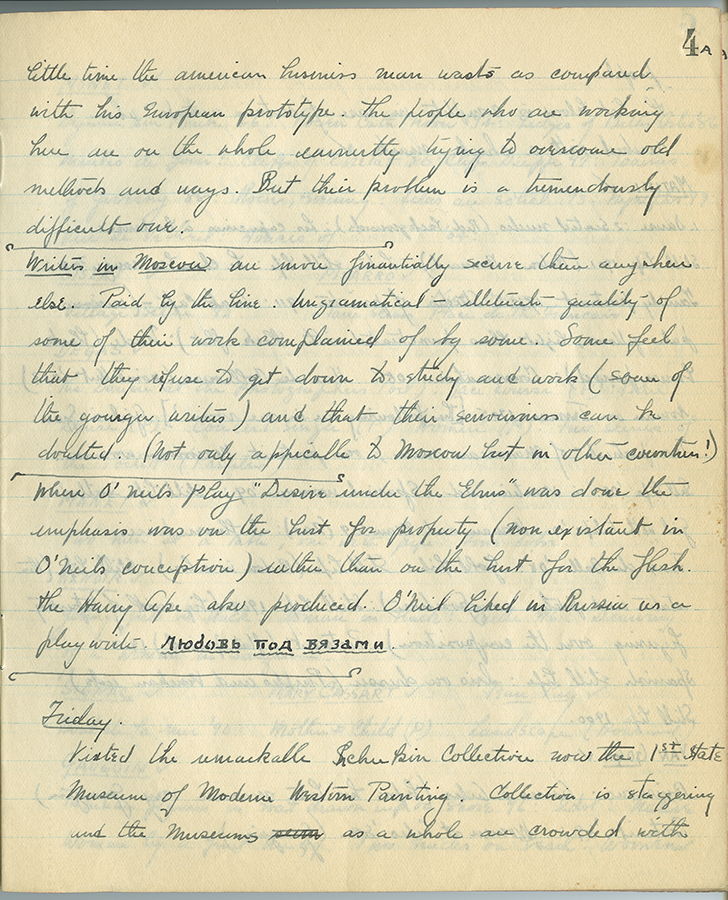 4A
little time the american business man wasts as compared
with his European prototype. The people who are working
here are on the whole earnertly trying to overcome old
methods and ways. But their problem is a tremendously
difficult one.
Writers in Moscow are more finantially secure than anywhere
else. Paid by the line. Ungramatical – illiterate quality of
some of their work complained of by some. Some feel
that they refuse to get down to study and work (some of
the younger writers) and that their seriousness can be
doubted. (Not only applicable to Moscow but in other countries!)
Where O'Neils play "Desire under the Elms" was done the
emphasis was on the lust for property (non existant in
O'Neils conception) rather than on the lust for the flesh.
The Hairy Ape also produced. O'Neil liked in Russia as a
playwrite. Любовь под вязами.
Friday.
Visted the remarkable Schukin Collection now the 1st State
Museum of Moderne Western Painting. Collection is staggering
and the Museums as a whole are crowded with